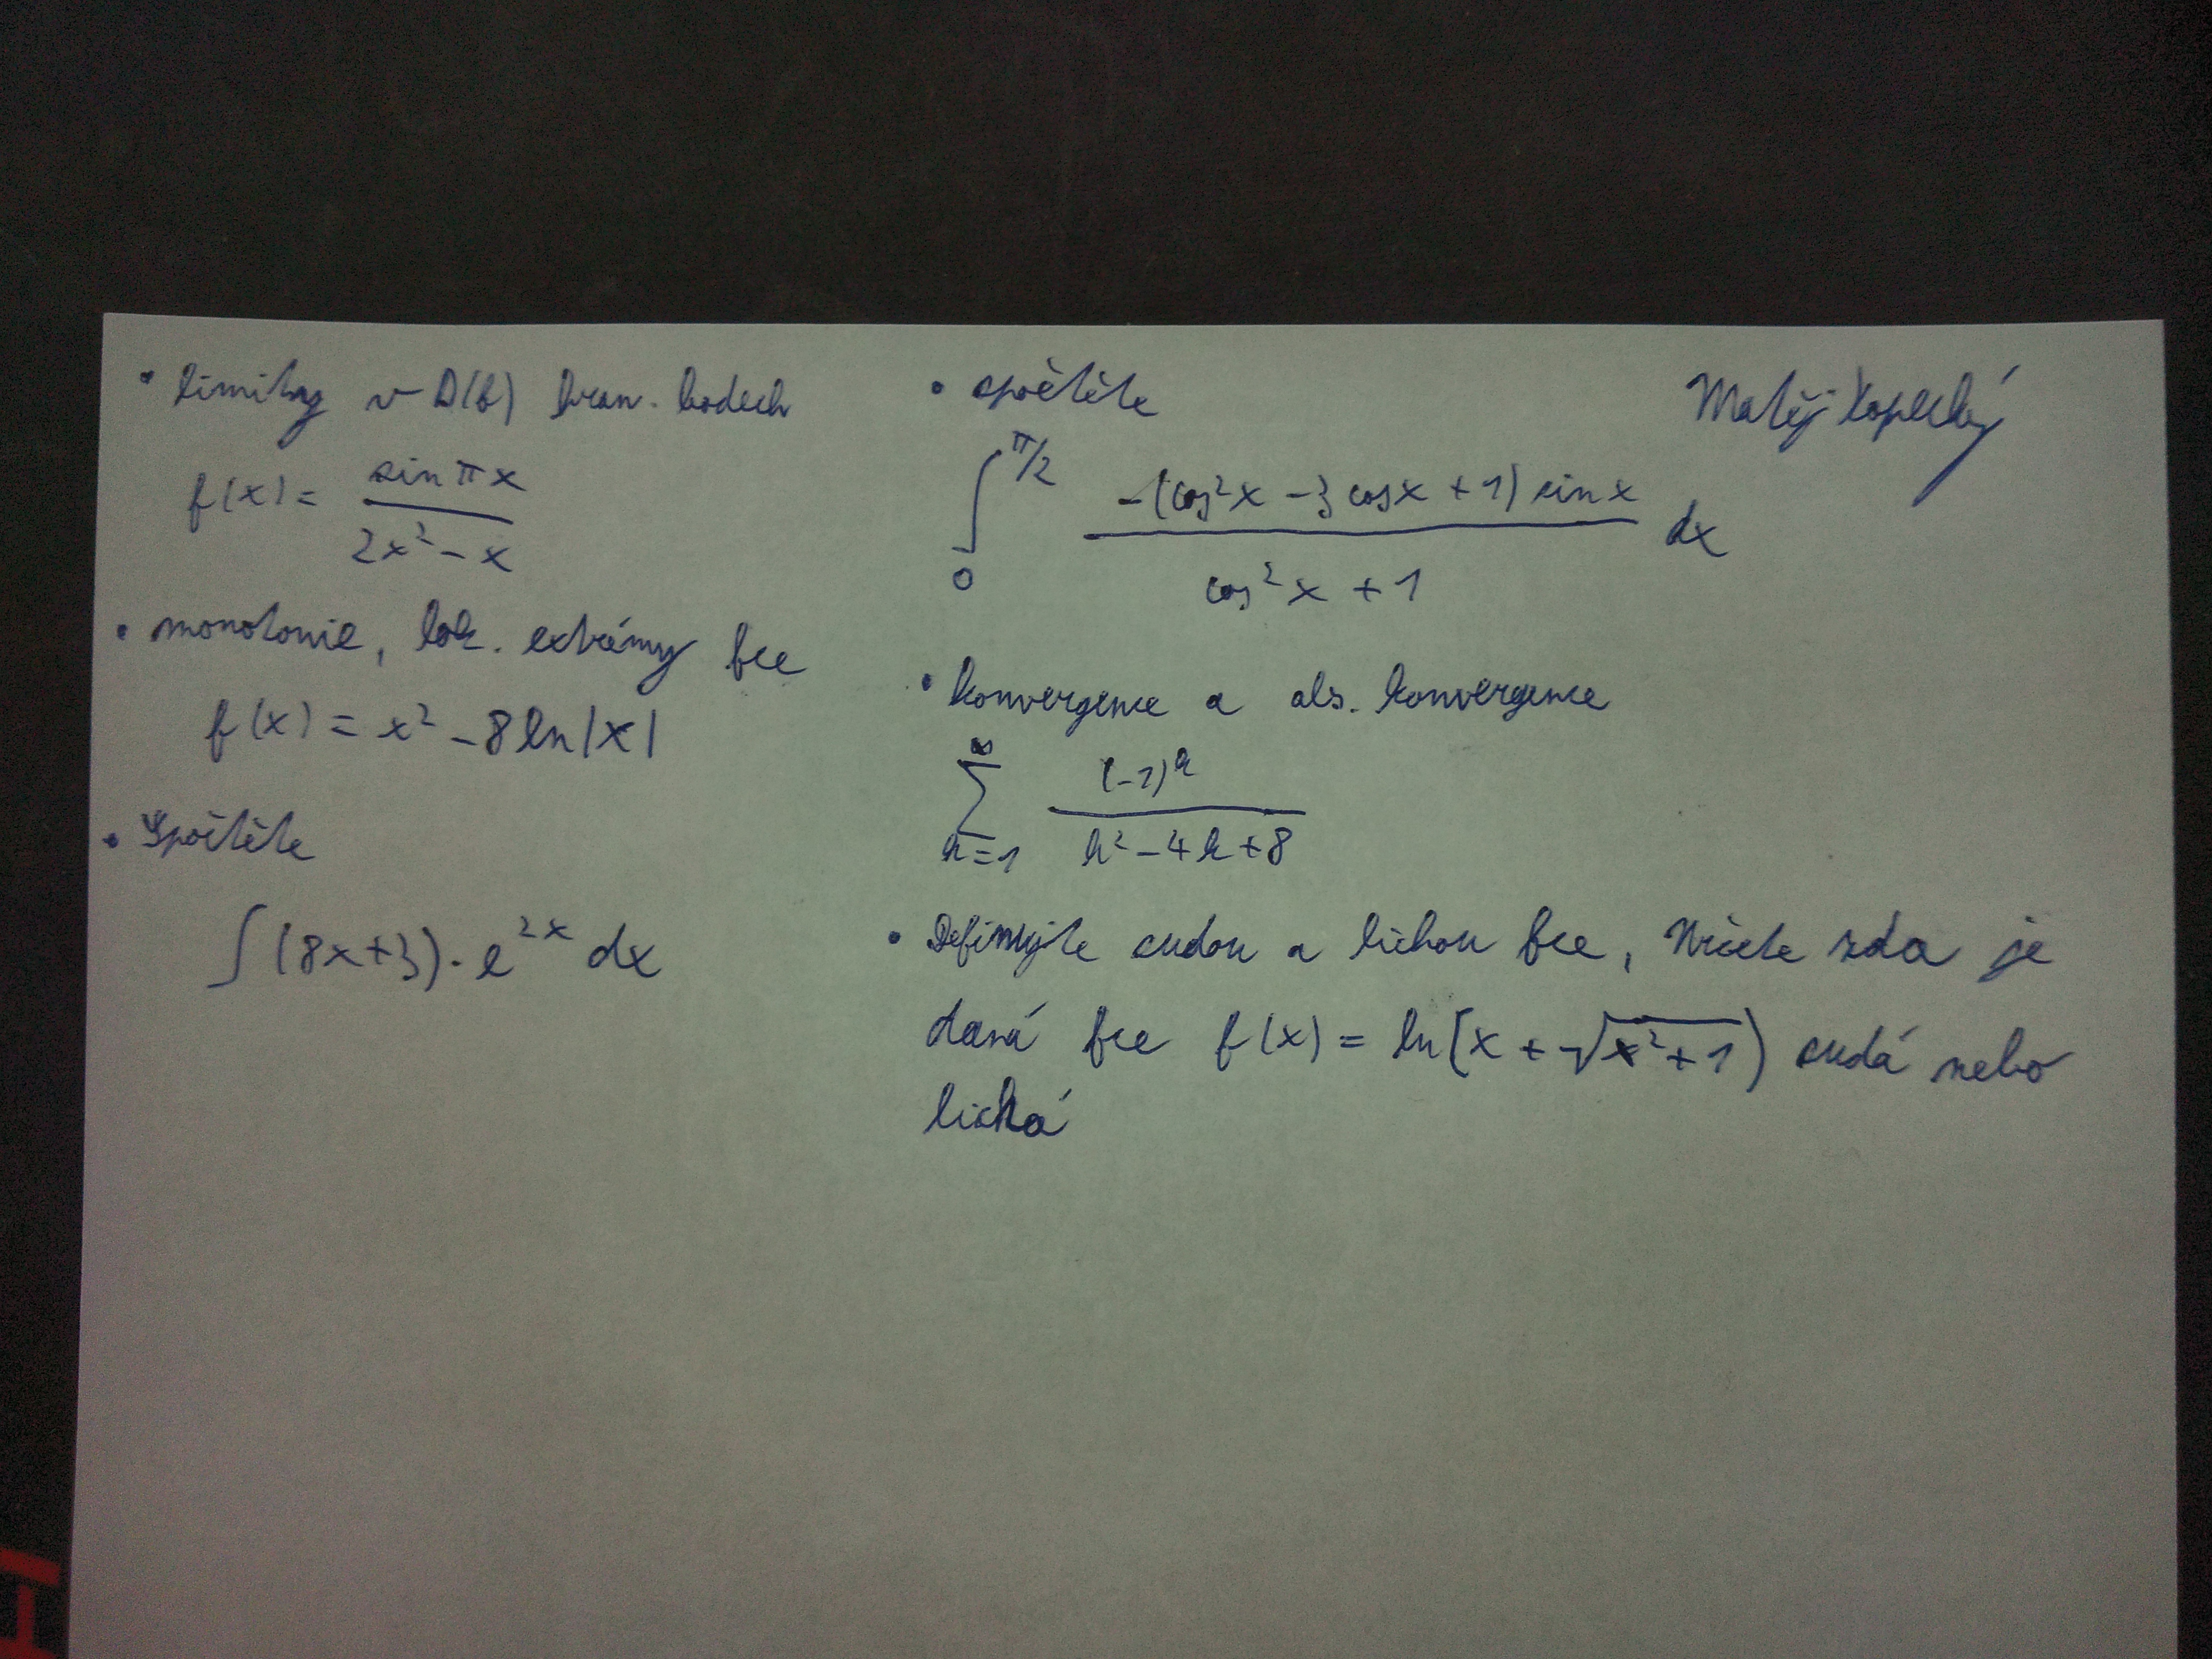 • limity v D(f) hran. bodech
f(x) = sin πx / (2x² - x)
• monotonie, lok. extrémy fce
f(x) = x² - 8 ln|x|
• Spočtěte
∫ (8x+3) · e^(2x) dx
• spočtěte
∫_0^(π/2) -(cos²x - 3 cosx + 1) sinx / (cos²x + 1) dx
• konvergence a abs. konvergence
∑_(k=1)^∞ (-1)^k / (k² - 4k + 8)
• Definujte sudou a lichou fce, Určete zda je
daná fce f(x) = ln(x + √(x²+1)) sudá nebo
lichá
Matěj Kopecký